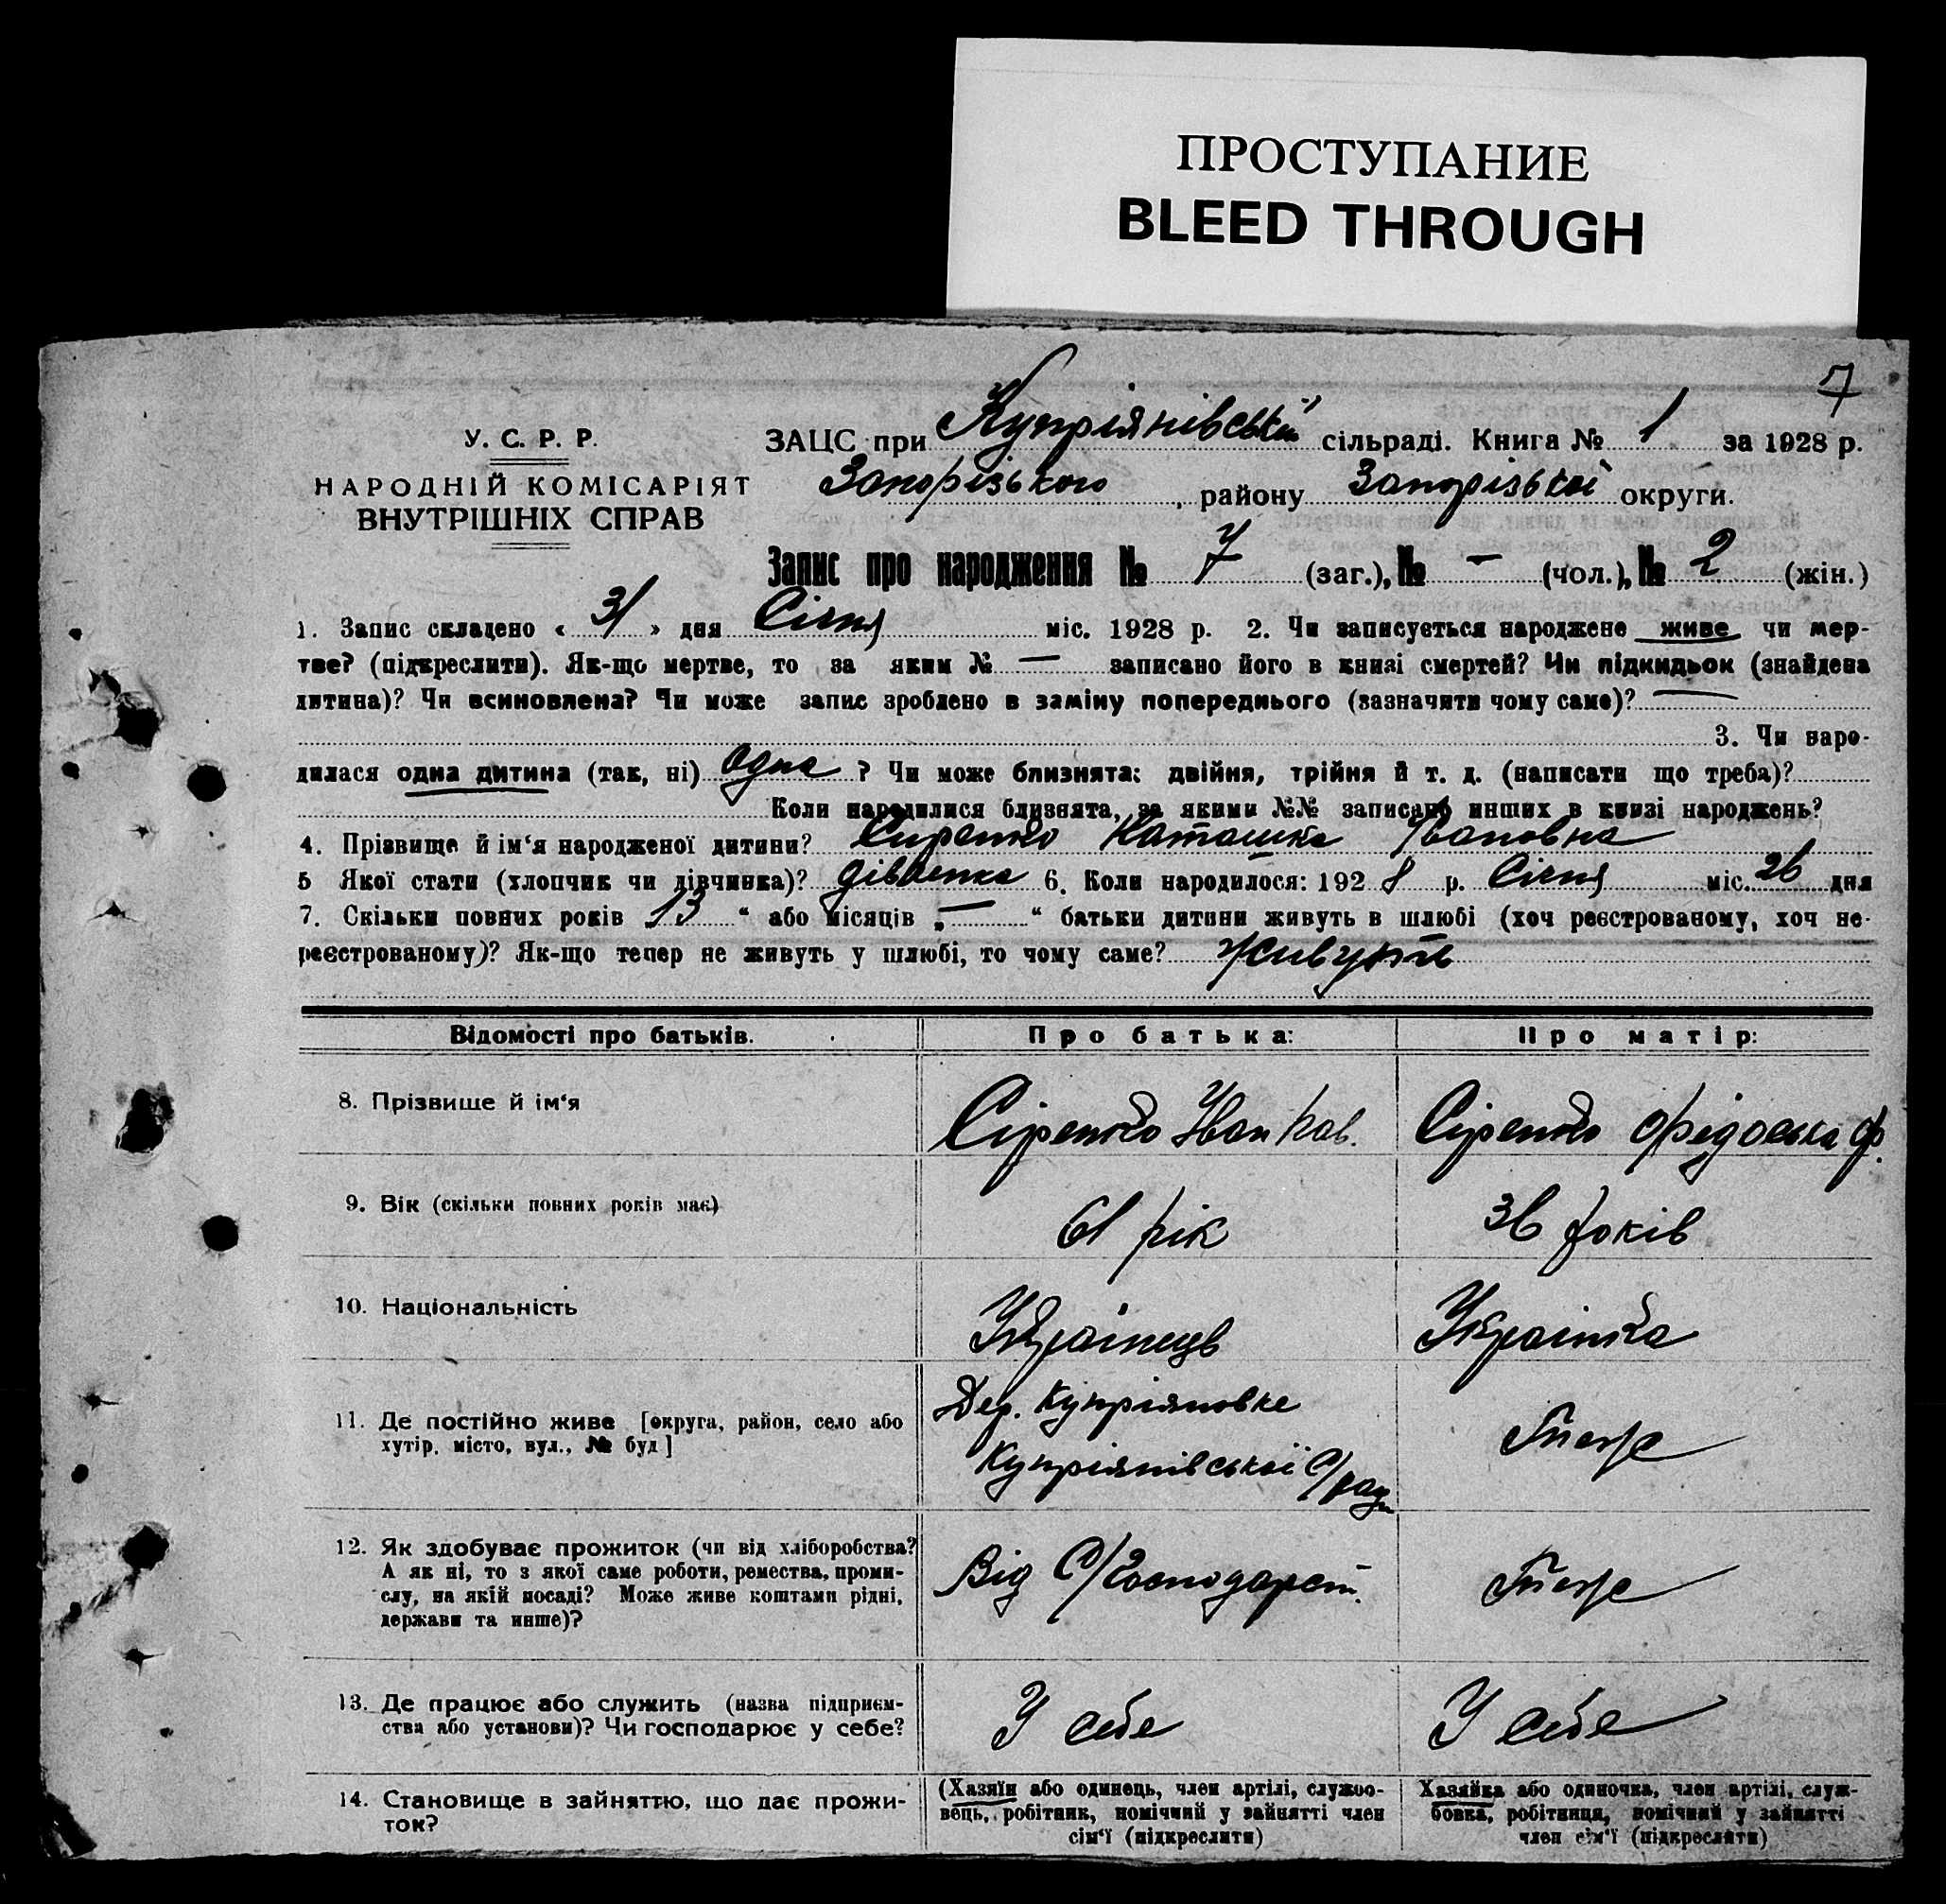 ПРОСТУПАНИЕ
BLEED THROUGH
7
У. С. Р. Р.
НАРОДНІЙ КОМІСАРІЯТ
ВНУТРІШНІХ СПРАВ
ЗАЦС при Купріянівській сільраді. Книга № 1 за 1928 р.
Запорізького, району Запорізької округи.
Запис про народження № 7 (заг.), № — (чол.), № 2 (жін.)
1. Запис складено « 31 » дня Січня міс. 1928 р. 2. Чи записується народжене живе чи мер-
тве? (підкреслити). Як-що мертве, то за яким № — записано його в книзі смертей? Чи підкидьок (знайдена
дитина)? Чи всиновлена? Чи може запис зроблено в заміну попереднього (зазначити чому саме)? —
3. Чи наро-
дилася одна дитина (так, ні) Одна ? Чи може близнята: двійня, трійня й т. д. (написати що треба)?
Коли народилися близнята, за якими №№ записано инших в книзі народжень?
4. Прізвище й ім‘я народженої дитини? Сиренко Наташка Івановна
5 Якої стати (хлопчик чи дівчинка)? дівченка 6. Коли народилося: 1928 р. Січня міс. 26 дня
7. Скільки повних років 13 “ або місяців „ — “ батьки дитини живуть в шлюбі (хоч реєстрованому, хоч не-
реєстрованому)? Як-що тепер не живуть у шлюбі, то чому саме? Живуть
Відомості про батьків. Про батька: Про матір:
8. Прізвище й ім‘я Сіренко Иван Пав. Сіренко Фєдоська Ф.
9. Вік (скільки повних років має) 61 рік 36 років
10. Національність Українець Українка
11. Де постійно живе [округа, район, село або
хутір, місто, вул., № буд]
Дер. Купріяновке
Купріянівської С/ради
Теж
12. Як здобуває прожиток (чи від хліборобства?
А як ні, то з якої саме роботи, ремества, проми-
слу, на якій посаді? Може живе коштами рідні,
держави та инше)?
Від С/Господарст.
Теж
13. Де працює або служить (назва підприєм-
ства або установи)? Чи господарює у себе?
У себе
У себе
14. Становище в зайняттю, що дає прожи-
ток?
(Хазяїн або одинець, член артілі, службо-
вець, робітник, помічний у зайнятті член
сім‘ї (підкреслити)
Хазяйка або одиночка, член артілі, служ-
бовка, робітниця, помічний у зайнятті
член сім‘ї (підкреслити)